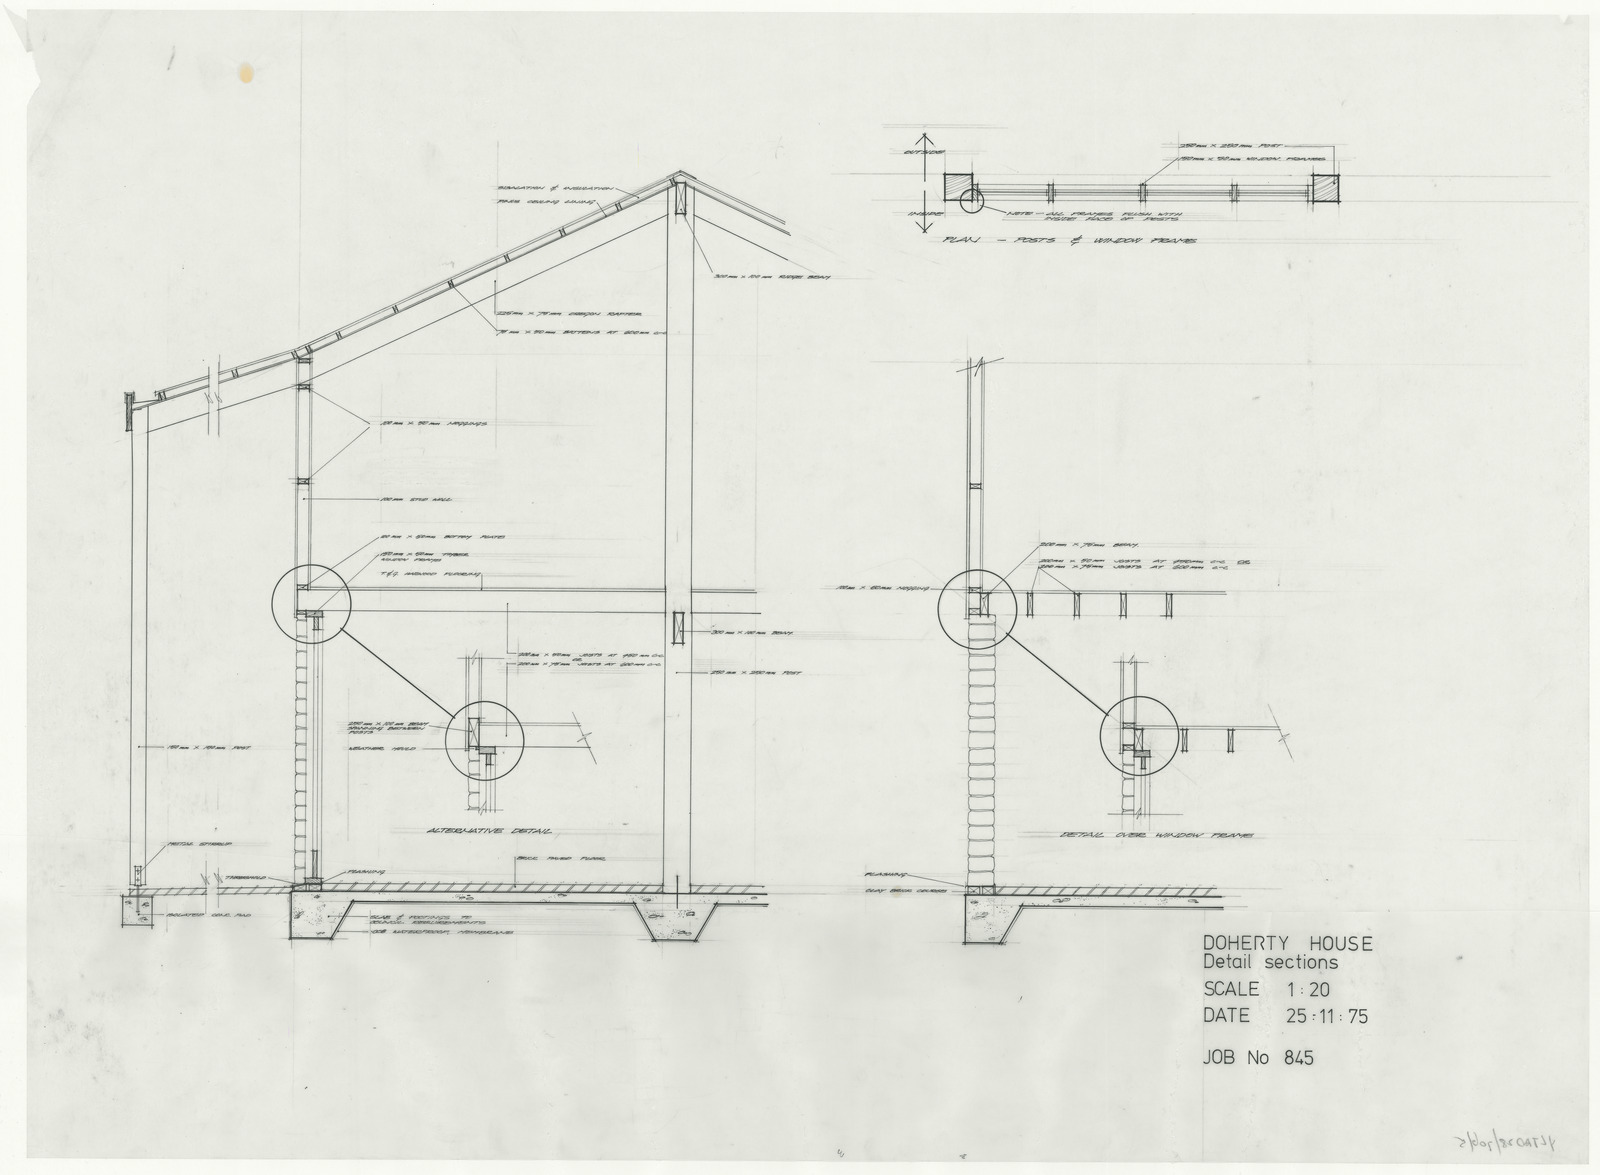 SISALATION & INSULATION
PINE CEILING LINING
300mm x 100mm RIDGE BEAM
225mm x 75mm OREGON RAFTER
75mm x 50mm BATTENS AT 600mm c-c
100mm x 50mm NOGGINGS
100mm STUD WALL
50mm BOTTOM PLATE
150mm x 50mm TIMBER
WINDOW FRAME
T.&G. FLOORING
300mm x 100mm BEAM
200mm x 50mm JOISTS AT 450mm c-c
OR
200mm x 75mm JOISTS AT 600mm c-c
250mm x 250mm POST
250mm x 100mm BEAM
SPANNING BETWEEN
POSTS
WEATHER MOULD
POST
ALTERNATIVE DETAIL
METAL STIRRUP
THRESHOLD
FLASHING
BRICK PAVED FLOOR
ISOLATED CONC. PAD
SLAB & FOOTINGS TO
COUNCIL REQUIREMENTS
WATERPROOF MEMBRANE
OUTSIDE
INSIDE
250mm x 250mm POST
150mm x 50mm WINDOW FRAMES
NOTE - ALL FRAMES FLUSH WITH
INSIDE FACE OF POSTS
PLAN - POSTS & WINDOW FRAME
200mm x 75mm BEAM
200mm x 50mm JOISTS AT 450mm c-c OR
200mm x 75mm JOISTS AT 600mm c-c
100mm x 50mm NOGGING
DETAIL OVER WINDOW FRAME
FLASHING
CLAY BRICK COURSES
DOHERTY HOUSE
Detail sections
SCALE 1:20
DATE 25:11:75
JOB No 845